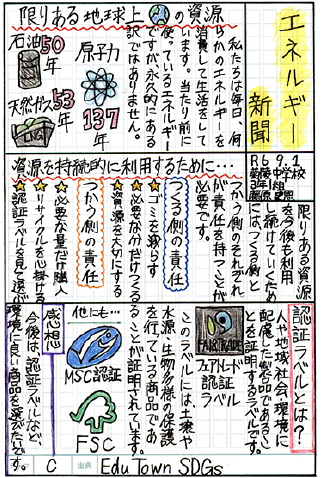 エネルギー
新聞
R6 9.1
限りある地球上の資源
私たちは毎日、何
らかのエネルギーを
消費して生活をして
います。当たり前に
使っているエネルギー
ですが、永久的にある
訳ではありません。
石油50年
原子力
137年
天然ガス53年
資源を持続的に利用するために…
限りある資源
を今後も利用
し続けていくため
には、つくる側と
つかう側のそれぞれ
が責任を持つことが
必要です。
つくる側の責任
★ゴミを減らす
★必要な分だけつくる
★資源を大切にする
つかう側の責任
★必要な量だけ購入
★リサイクルを心掛ける
★認証ラベルを見て選ぶ
認証ラベルとは?
人や地域、社会、環境に
配慮した製品であるこ
とを証明するラベルです。
FAIRTRADE
フェアトレード
認証ラベル
このラベルには、土壌や
水源、生物多様の保護
を行っている商品であ
ることが証明されています。
他にも…
MSC認証
FSC
感想
今後は、認証ラベルなど、
環境に良い商品を選びたいです。
C
出典
Edu Town SDGs